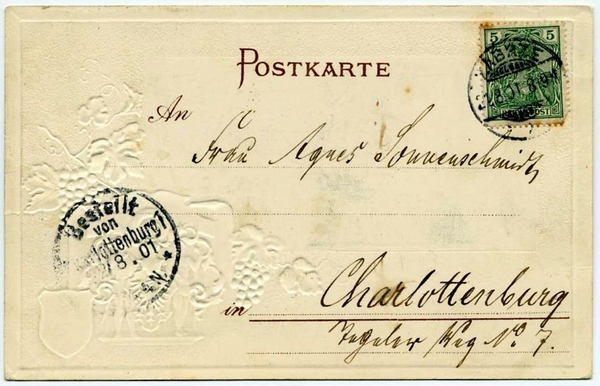 POSTKARTE
5 5
An
Frau Agnes Sonnenschmidt
Bestellt
von
Charlottenburg 1
8.01
N.
in Charlottenburg
Tegeler Weg No 7.